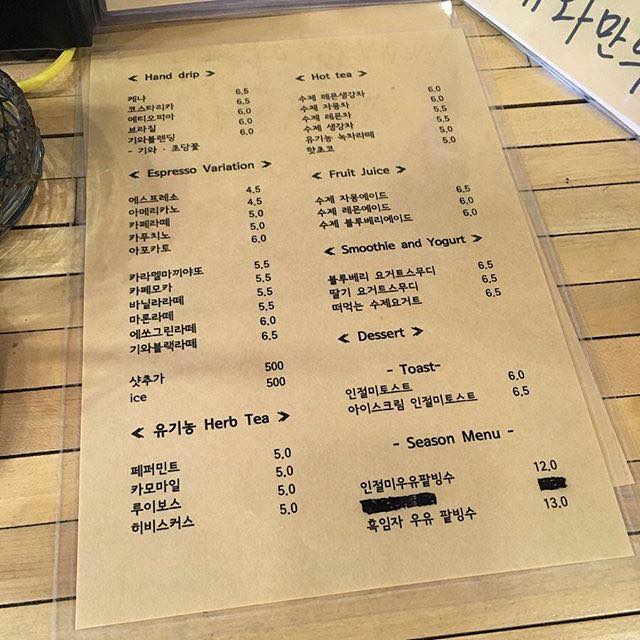 < Hand drip >
케냐 6.5
코스타리카 6.5
에티오피아 6.0
브라질 6.0
기와블렌딩 6.0
- 기와 · 초당꽃
< Espresso Variation >
에스프레소 4.5
아메리카노 4.5
카페라떼 5.0
카푸치노 5.0
아포카토 6.0
카라멜마끼야또 5.5
카페모카 5.5
바닐라라떼 5.5
마론라떼 5.5
에쏘그린라떼 6.0
기와블랙라떼 6.5
샷추가 500
ice 500
< 유기농 Herb Tea >
페퍼민트 5.0
카모마일 5.0
루이보스 5.0
히비스커스 5.0
< Hot tea >
수제 레몬생강차 6.0
수제 자몽차 6.0
수제 레몬차 5.5
수제 생강차 5.5
유기농 녹차라떼 5.5
핫초코
< Fruit Juice >
수제 자몽에이드 6.5
수제 레몬에이드 6.0
수제 블루베리에이드 6.5
< Smoothie and Yogurt >
블루베리 요거트스무디 6.5
딸기 요거트스무디 6.5
떠먹는 수제요거트 6.5
< Dessert >
- Toast-
인절미토스트 6.0
아이스크림 인절미토스트 6.5
- Season Menu -
인절미우유팥빙수 12.0
흑임자 우유 팥빙수 13.0